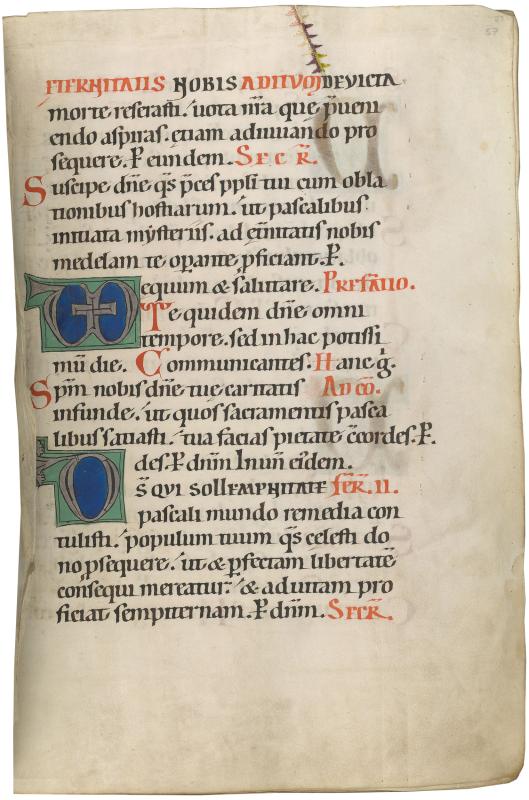 57
ETERNITATIS NOBIS ADITVM DEVICTA
morte reserasti. uota nr̄a que p̄ueni
endo aspiras. etiam adiuuando pro
sequere. P̄ eundem. SECR̄.
Suscipe dn̄e q̄s p̄ces pp̄li tui cum obla
tionibus hostiarum. ut pascalibus
initiata mẏsteriis. ad et̄nitatis nobis
medelam te op̄ante p̄ficiant. P̄.
equum & salutare. PREFATIO.
Te quidem dn̄e omni
tempore. sed in hac potissi
mū die. Communicantes. Hanc g̊.
Sp̄m nobis dn̄e tue caritatis AD CŌ.
infunde. ut quos sacramentis pasca
libus satiasti. tua facias pietate c̄cordes. P̄.
des. P̄ dn̄m In un̄ ei'dem.
S̄ QVI SOLLEMPNITATE FER̄. II.
pascali mundo remedia con
tulisti. populum tuum q̄s celesti do
no p̄sequere. ut & p̄fectam libertatē
consequi mereatur. & ad uitam pro
ficiat sempiternam. P̄ dn̄m. SECR̄.